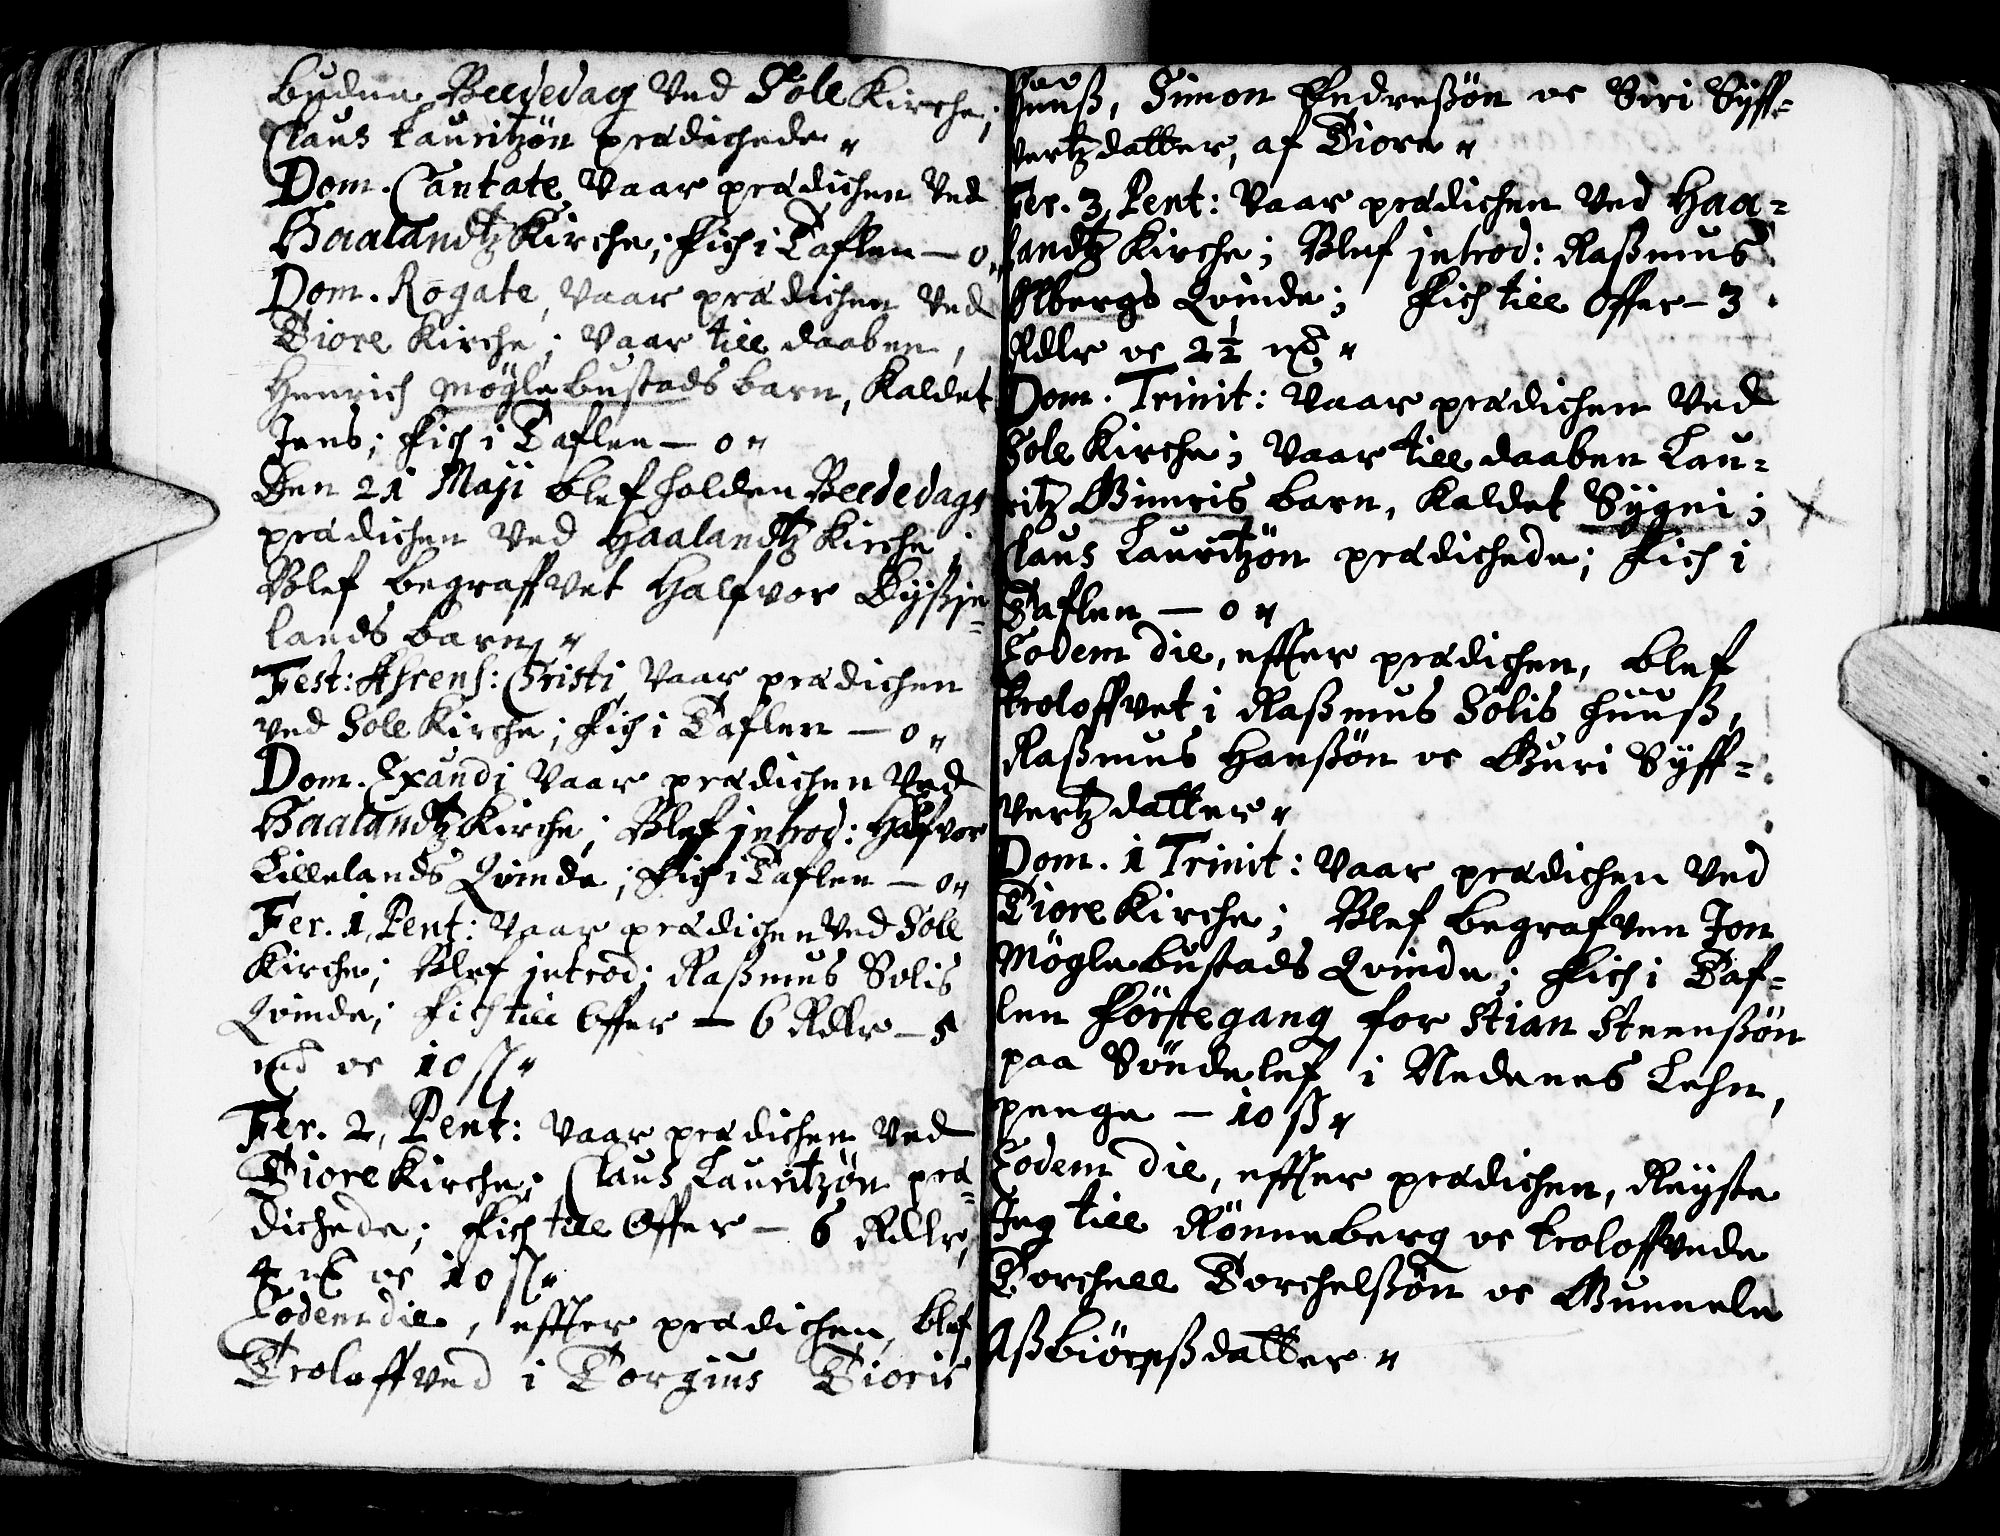 budne Beededag Ved Sole Kirche;
Claus Lauritzøn prædichede "
Dom. Cantate Vaar prædichen Ved
Haalandtz Kirche; Fich i Taflen — 0 "
Dom. Rogate, Vaar prædichen Ved
Tiore Kirche; Vaar till daaben,
Henrich Møglebustads barn, Kaldet
Jens; Fich i Taflen — 0 "
Den 21 Maji blef holden Beededags
prædichen Ved Haalandtz Kirche;
Blef begraffvet Halfvor
lands barn "
Fest: Ascens: Cristi, Vaar prædichen
Ved Sole Kirche; Fich i Taflen — 0 "
Dom. Exaudi Vaar prædichen Ved
Haalandtz Kirche; Blef introd: Halfvor
Lillelands Qvinde; Fich i Taflen — 0 "
Fer. 1, Pent: Vaar prædichen Ved Sole
Kirche; Blef introd: Rasmus Solis
Qvinde; Fich till Offer — 6 Rdlr — 5
oc 10 ß "
Fer. 2, Pent: Vaar prædichen Ved
Tiore Kirche; Claus Lauritzøn præ-
dichede; Fich till Offer — 6 Rdlr,
4 oc 10 ß "
Eodem die, effter prædichen, blef
Troloffved i Torgius Tioris
huuß, Simon Endreßøn oc Siri Syff-
vertzdatter, af Tiore "
Fer. 3, Pent: Vaar prædichen Ved Haa-
landtz Kirche; Blef introd: Raßmus
Ølbergs Qvinde; Fich till Offer — 3
Rdlr oc 2½ "
Dom. Trinit: Vaar prædichen Ved
Sole Kirche; Vaar till daaben Lau-
ritz Gimris barn, Kaldet Sygni;
Claus Lauritzøn prædichede; Fich i
Taflen — 0 "
Eodem die, effter prædichen, blef
troloffvet i Raßmus Solis huuß,
Raßmus Hanßøn oc Guri Syff-
vertzdatter "
Dom. 1 Trinit: Vaar prædichen Ved
Tiore Kirche; Blef begrafven Jon
Møglebustads Qvinde; Fich i Taf-
len Førstegang for Stian Steenßøn
paa Søndelef i Nedenes Lehn,
penge — 10 ß "
Eodem die, effter prædichen, Reyste
Jeg till Rønneberg oc troloffvede
Torchell Torchelßøn oc Gunnele
Aßbiørnßdatter "